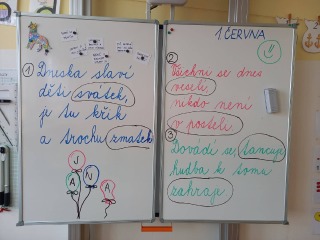 ① Dneska slaví
děti svátek,
je tu křik
a trochu zmatek.
J
A N
A
1 ČERVNA
②
Všichni se dnes
veselí,
nikdo není
v posteli.
③
Dovádí se, tancuje,
hudba k tomu
zahraje.